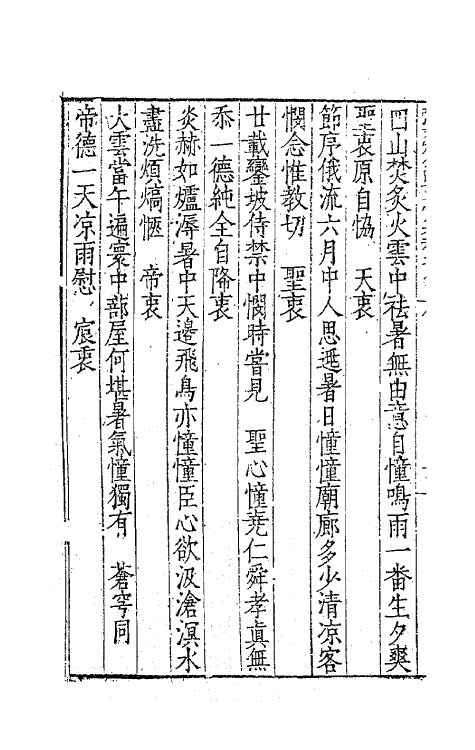 四山焚炙火雲中祛暑無由意自憧鳴雨一番生夕爽
聖衷原自恊　天衷
節序俄流六月中人思逃暑日憧憧廟廊多少清凉客
憫念惟教切　聖衷
廿載鑾坡侍禁中憫時嘗見　聖心憧堯仁舜孝真無
忝一德純全自降衷
炎赫如爐溽暑中天邊飛鳥亦憧憧臣心欲汲滄溟水
盡洗煩熇愜　帝衷
火雲當午遍寰中部屋何堪暑氣憧獨有　蒼穹同
帝德一天凉雨慰　宸衷